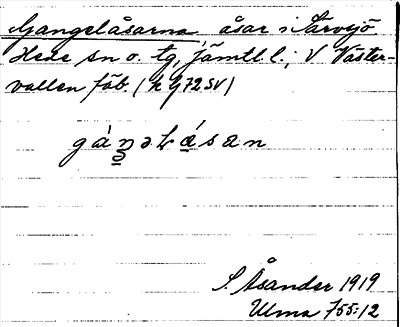 Gangelåsarna, åsar i Särvsjö
Hede sn o. tg, Jämtl. l.; V Väster-
vallen fäb. (h G 72 SV)
gáŋəlåsan
S. Åsander 1919
Ulma 755:12